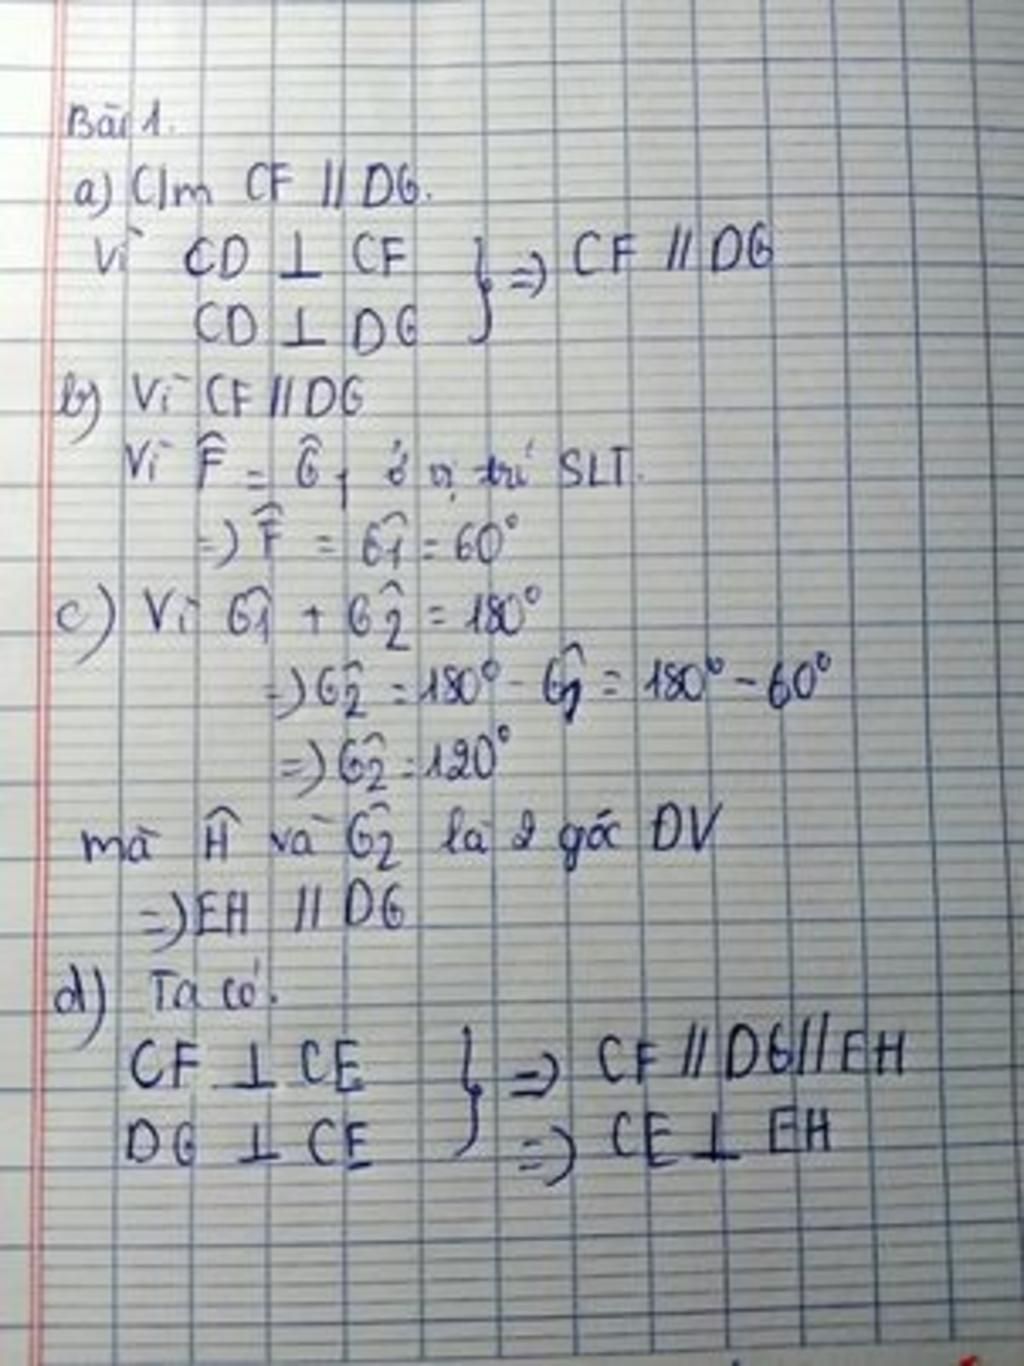 Bài 1.
a) C/m CF // DG.
Vì CD ⊥ CF } => CF // DG
CD ⊥ DG
b) Vì CF // DG
Vì F̂ = Ĝ1 ở vị trí SLT.
=> F̂ = Ĝ1 = 60°
c) Vì Ĝ1 + Ĝ2 = 180°
=> Ĝ2 = 180° - Ĝ1 = 180° - 60°
=> Ĝ2 = 120°
mà Ĥ và Ĝ2 là 2 góc ĐV
=> EH // DG
d) Ta có.
CF ⊥ CE } => CF // DG // EH
DG ⊥ CE => CE ⊥ EH